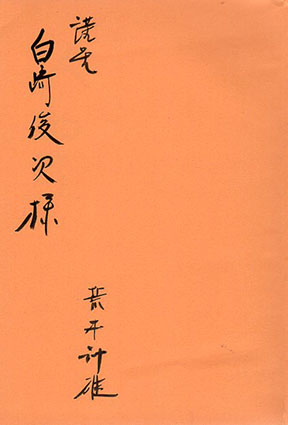 謹呈
白崎俊次様
荒井計雄